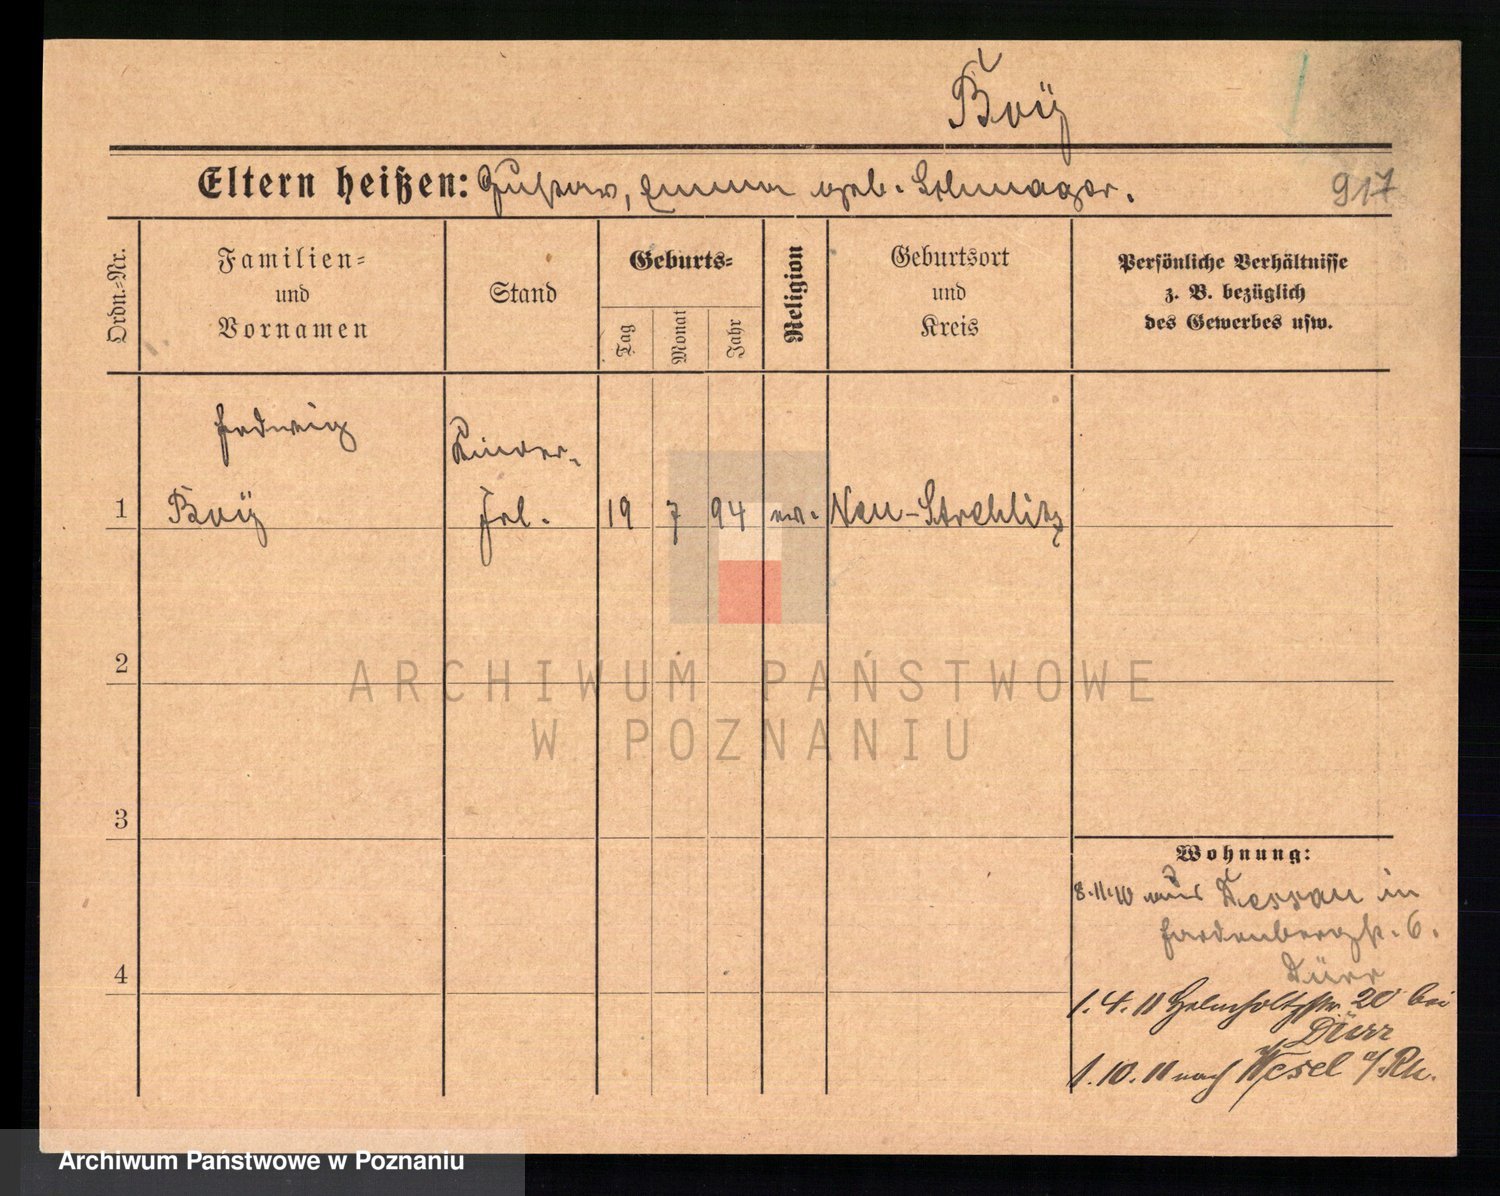 Boÿ
Eltern heißen: Gustav, Emma geb. Schwager.
917
Ordn.-Nr.
Familien-
und
Vornamen
Stand
Geburts-
Tag
Monat
Jahr
Religion
Geburtsort
und
Kreis
Persönliche Verhältnisse
z. B. bezüglich
des Gewerbes usw.
Hedwig
Kinder-
1 Boÿ Frl. 19 7 94 ev. Neu-Strehlitz
2
ARCHIWUM PAŃSTWOWE
W POZNANIU
3
Wohnung:
8.11.10 aus Dessau in
Hardenbergstr. 6.
4
Dürr
1.4.11 Helmholtzstr. 20 bei
Dürr
1.10.11 nach Wesel a/Rh.
Archiwum Państwowe w Poznaniu